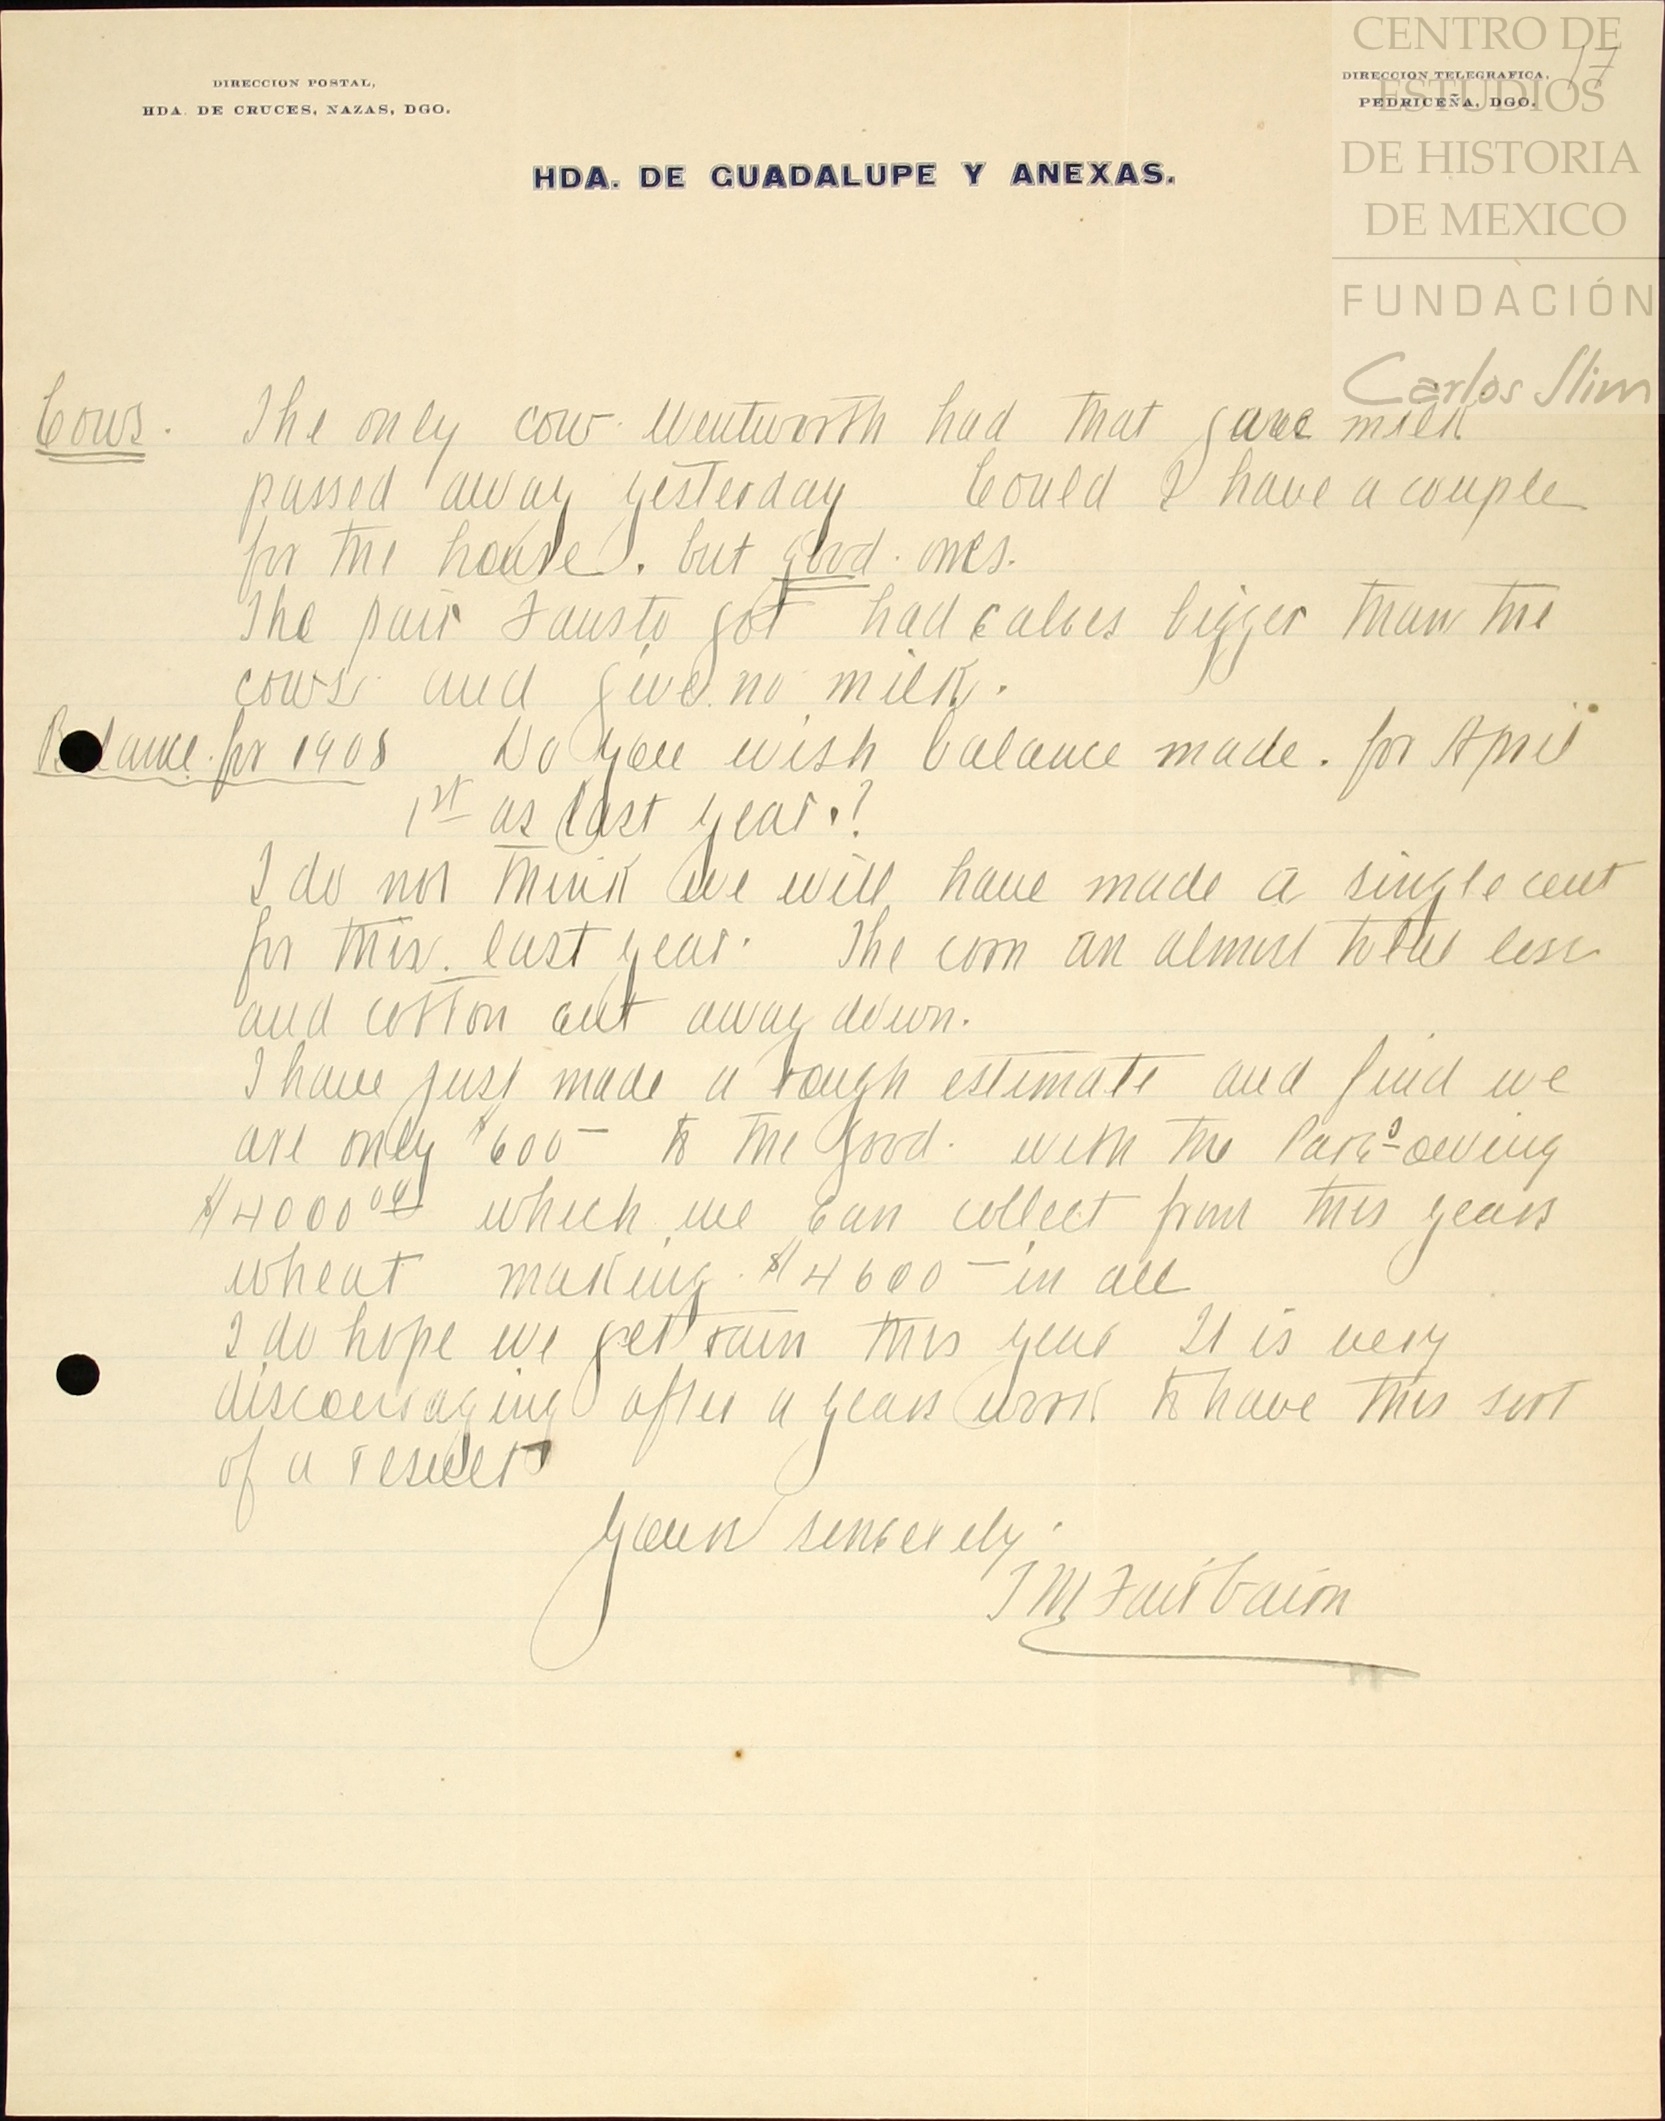 DIRECCION POSTAL,
HDA. DE CRUCES, NAZAS, DGO.
DIRECCION TELEGRAFICA,
PEDRICEÑA, DGO.
17
CENTRO DE
ESTUDIOS
DE HISTORIA
DE MEXICO
FUNDACIÓN
Carlos Slim
HDA. DE GUADALUPE Y ANEXAS.
Cows. The only cow Wentworth had that gave milk
passed away yesterday Could I have a couple
for the house. but good ones.
The pair Fausto got had calves bigger than the
cows and give no milk.
Balance for 1908 Do you wish balance made. for April
1st as last year.?
I do not think we will have made a single cent
for this last year. The corn an almost total loss
and cotton cut away down.
I have just made a rough estimate and find we
are only $600— to the good. with the owing
$4000 00 which we can collect from this years
wheat making $4600— in all
I do hope we get rain this year It is very
discouraging after a years work to have this sort
of a result
Yours sincerely.
J M Fairbairn